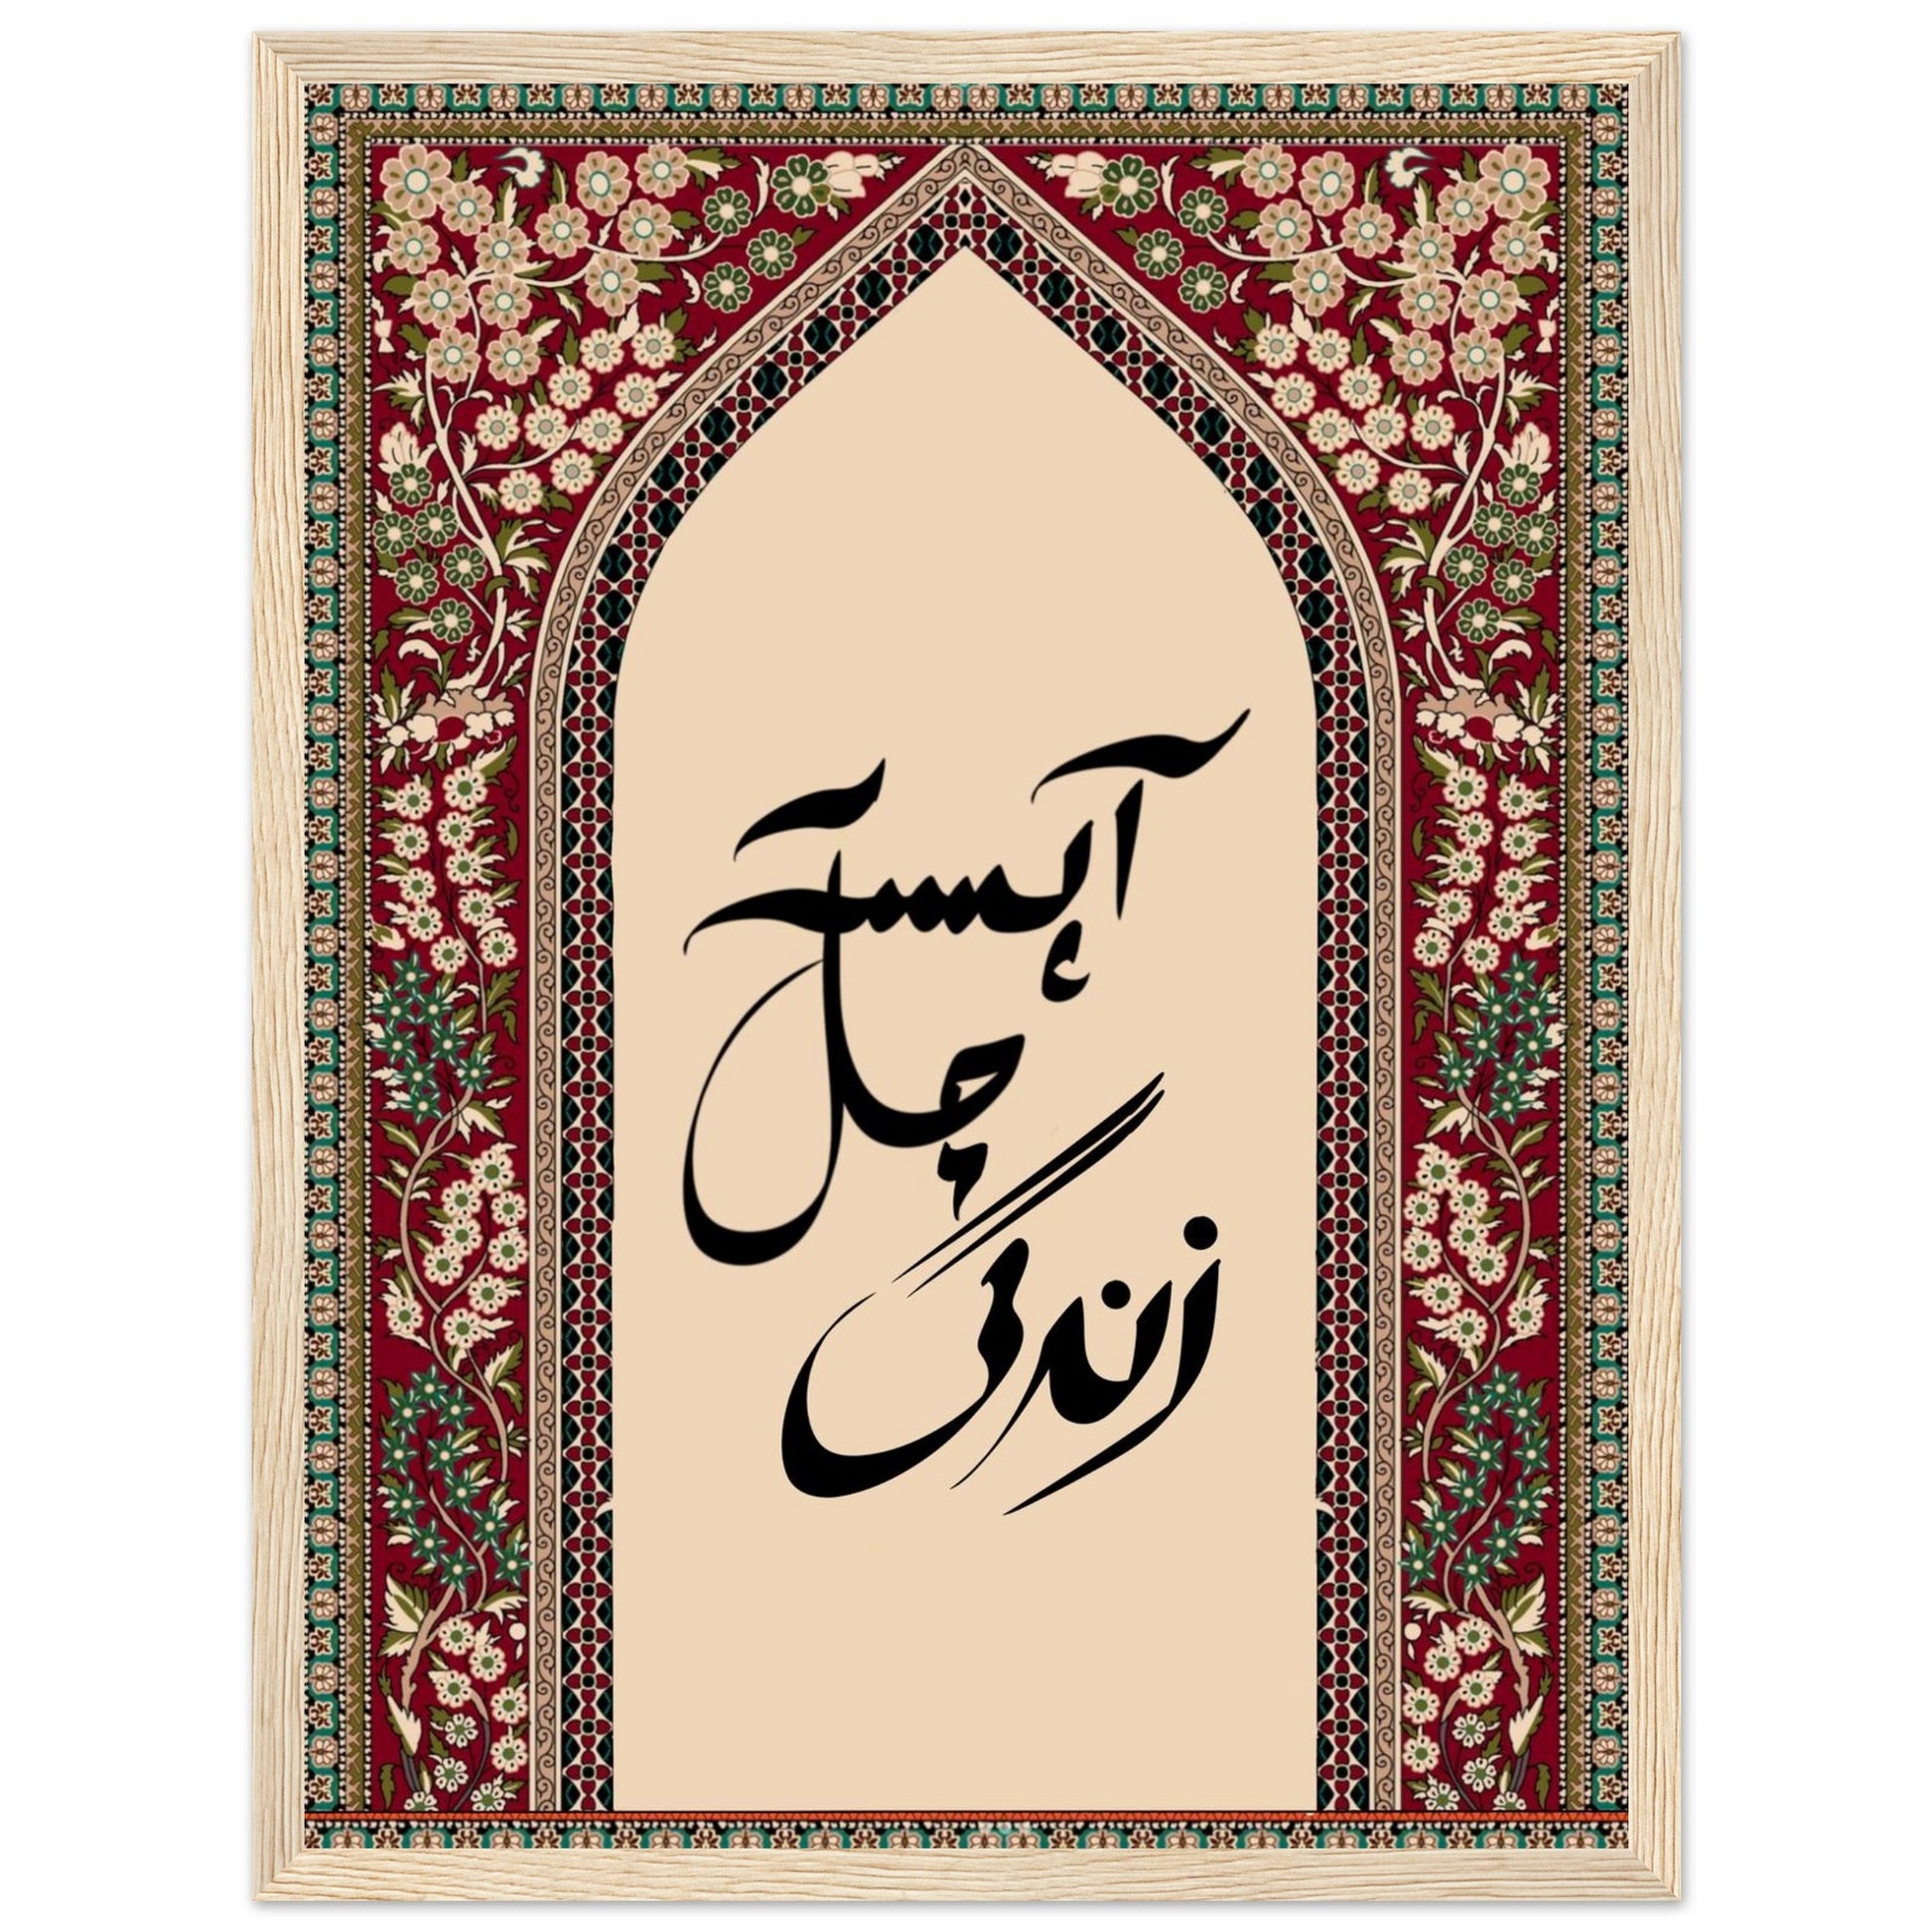 آہستہ
چل
زندگی